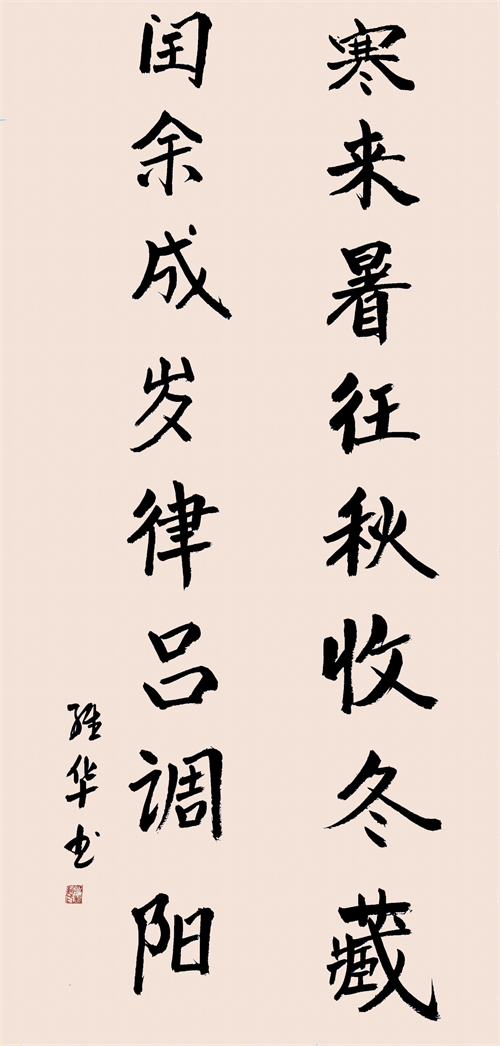 寒来暑往秋收冬藏
闰余成岁律吕调阳
维华书